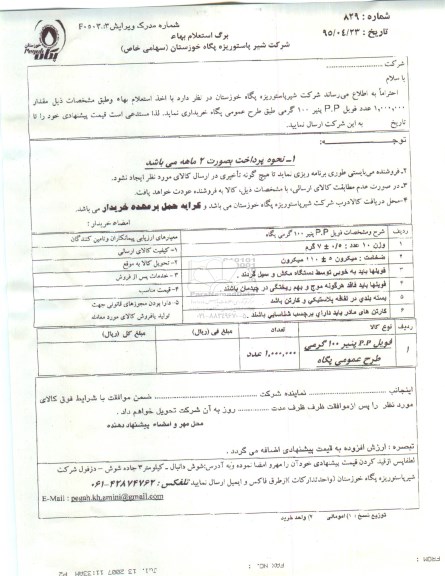 شماره : ۸۲۹
تاریخ : ۹۵/۰۴/۲۳
شماره مدرک ویرایش F۰۵۰۳.۳
برگ استعلام بهاء
شرکت شیر پاستوریزه پگاه خوزستان (سهامی خاص)
پگاه
Pegah
شرکت
با سلام
احتراماً به اطلاع می‌رساند شرکت شیرپاستوریزه پگاه خوزستان در نظر دارد با اخذ استعلام بهاء وطبق مشخصات ذیل مقدار
۱,۰۰۰,۰۰۰ عدد فویل P.P پنیر ۱۰۰ گرمی طبق طرح عمومی پگاه خریداری نماید. لذا مستدعی است قیمت پیشنهادی خود را تا
تاریخ به این شرکت ارسال نمایید.
توجه:
۱ـ نحوه پرداخت بصورت ۲ ماهه می باشد
۲ـفروشنده می‌بایستی طوری برنامه ریزی نماید تا هیچ گونه تأخیری در ارسال کالای مورد نظر ایجاد نشود.
۳ـ در صورت عدم مطابقت کالای ارسالی، با مشخصات ذیل، کالا به فروشنده عودت خواهد یافت.
۴ـمحل دریافت کالادرب شرکت شیرپاستوریزه پگاه خوزستان می باشد و کرایه حمل برعهده خریدار می باشد.
امضاء خریدار :
ردیف شرح ومشخصات فویل P.P پنیر ۱۰۰ گرمی پگاه معیارهای ارزیابی پیمانکاران وتامین کنندگان
۱ وزن ۱۰ عدد : ۰/۵ ± ۷ گرم ۱-کیفیت کالای ارسالی
۲ ضخامت : میکرون ۵ ± ۱۱۰ میکرون ۲-تحویل کالا به موقع
۳ فویلها باید به خوبی توسط دستگاه مکش و سیل گردند . ۳- خدمات پس از فروش
۴ فویلها باید فاقد هرگونه موج و بهم ریختگی در چیدمان باشند ۴-قیمت مناسب
۵ بسته بندی در لفافه پلاستیکی و کارتن باشد ۵- دارا بودن مجوزهای قانونی جهت
۶ کارتن های مادر باید دارای برچسب شناسایی باشند . تولید یافروش کالای مورد معامله
ردیف نوع کالا تعداد مبلغ فی (ریال) مبلغ کل (ریال)
۱ فویل P.P پنیر ۱۰۰ گرمی ۱,۰۰۰,۰۰۰ عدد
طرح عمومی پگاه
اینجانب نماینده شرکت ضمن موافقت با شرایط فوق کالای
مورد نظر را پس ازموافقت ظرف مدت روز به آن شرکت تحویل خواهم داد .
محل مهر و امضاء پیشنهاد دهنده
تبصره : ارزش افزوده به قیمت پیشنهادی اضافه می گردد .
لطفاپس ازقید کردن قیمت پیشنهادی خودآن را مهرو امضا نموده وبه آدرس:شوش دانیال - کیلومتر ۳ جاده شوش - دزفول شرکت
شیرپاستوریزه پگاه خوزستان (واحدتدارکات )ازطرق فاکس و ایمیل ارسال نمایید تلفکس : ۴۲۸۷۴۷۶۲-۰۶۱
E-Mail : pegah.kh.amini@gmail.com
توزیع نسخ : ۱) امورمالی ۲) واحد خرید
FROM :
FAX NO. :